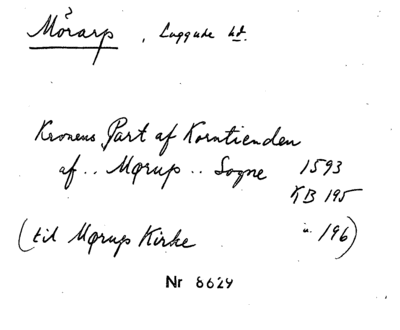 Mörarp, Luggude hd.
Kronens Part af Korntienden
af .. Mørup .. Sogne 1593
KB 195
(til Mørup Kirke u. 196)
Nr 8624